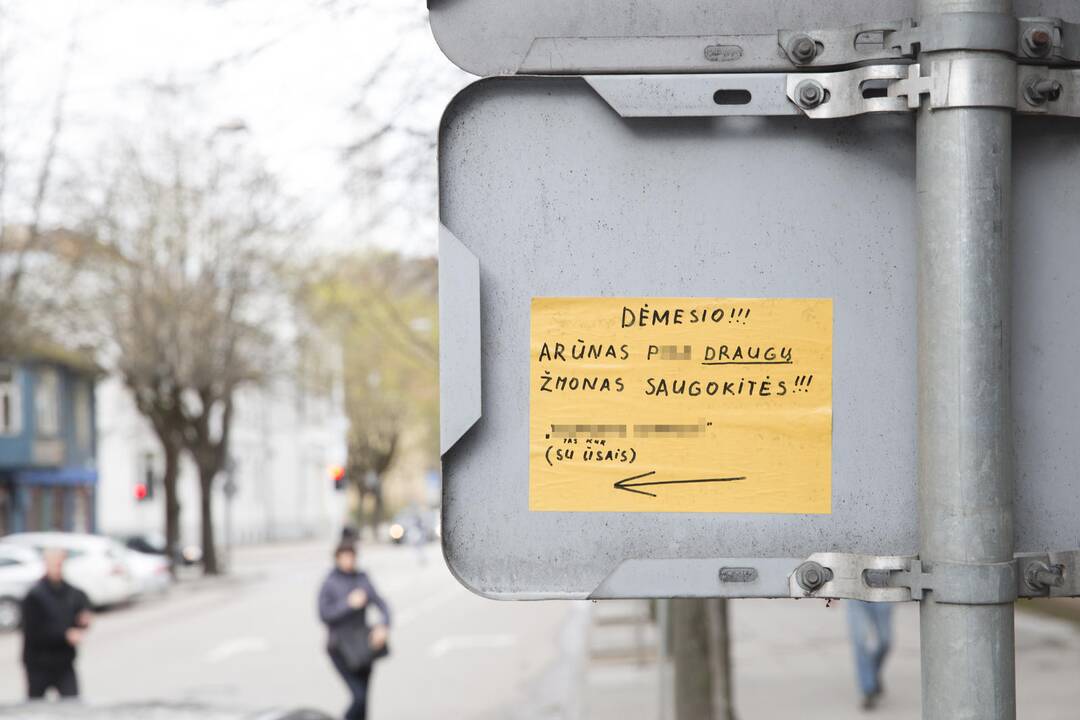 DĖMESIO!!!
ARŪNAS P DRAUGŲ
ŽMONAS SAUGOKITĖS!!!
TAS KUR
(SU ŪSAIS)